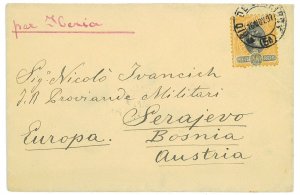 par Iberia
Sigr Nicolò Ivancich
I. R. Proviande Militari
Serajevo
Europa. Bosnia
Austria